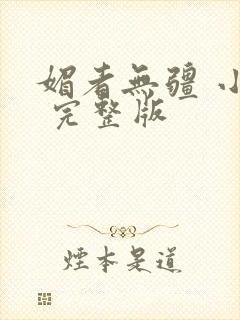 媚者無疆 小
完整版
煙本是道